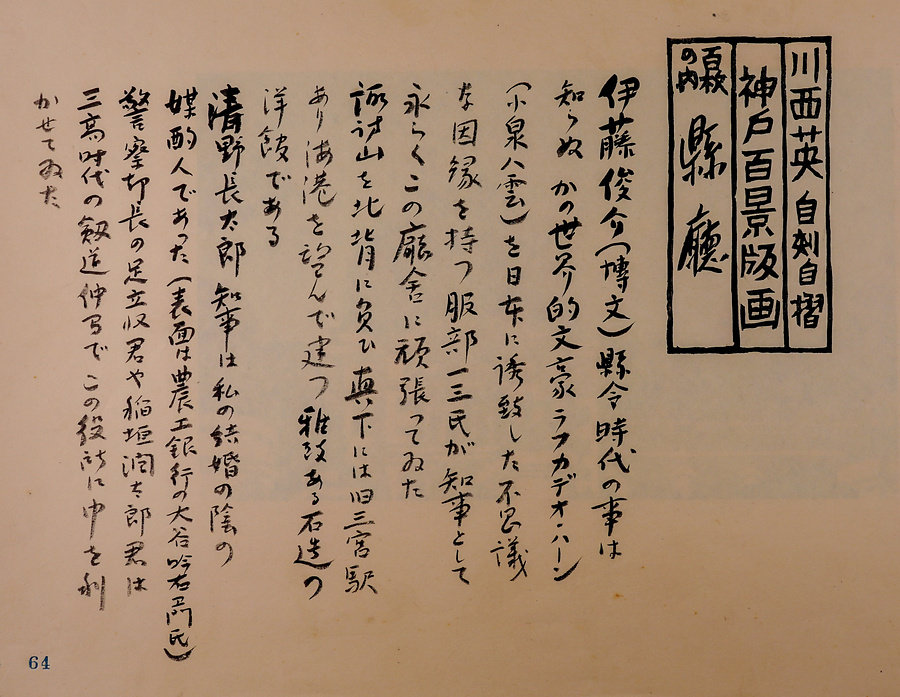 川西英 自刻自摺
神戸百景版画
百枚の内 縣廳
伊藤俊介(博文)縣令時代の事は
知らぬ かの世界的文豪ラフカデオ・ハーン
(小泉八雲)を日本に誘致した不思議
な因縁を持つ服部一三氏が知事として
永らくこの廳舎に頑張ってゐた
諏訪山を北背に負ひ真下には旧三宮駅
あり海港を望んで建つ雅致ある石造の
洋館である
清野長太郎知事は私の結婚の陰の
媒酌人であった(表面は農工銀行の大谷吟右衛門氏)
警察部長の足立収君や稲垣潤太郎君は
三高時代の剱道仲間でこの役所に巾を利
かせてゐた
64